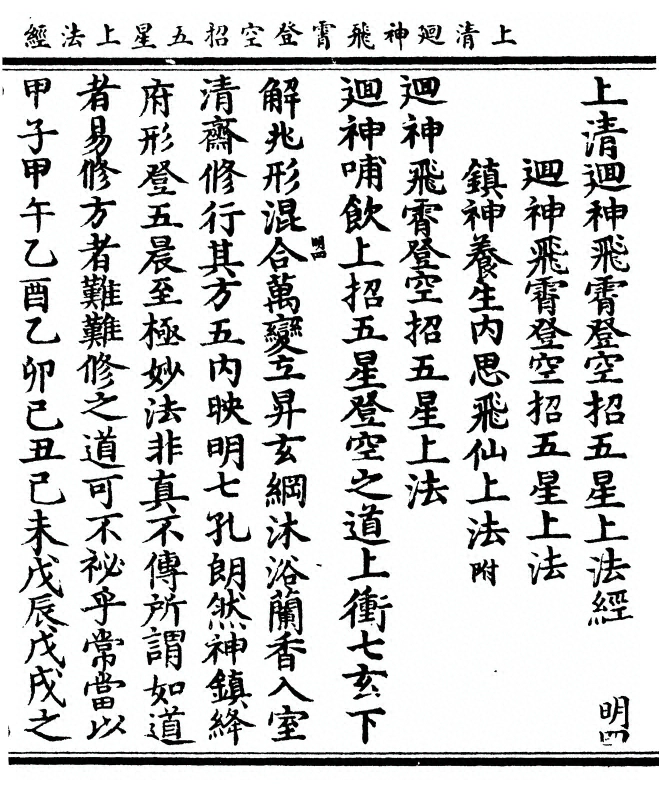 上清廻神飛霄登空招五星上法經
上清廻神飛霄登空招五星上法經
明四
廻神飛霄登空招五星上法
鎮神養生内思飛仙上法附
廻神飛霄登空招五星上法
廻神哺飲上招五星登空之道上衝七玄下
解兆形混合萬變立昇玄綱沐浴蘭香入室
明四
清齋修行其方五内映明七孔朗然神鎮絳
府形登五晨至極妙法非真不傳所謂如道
者易修方者難難修之道可不祕乎常當以
甲子甲午乙酉乙卯己丑己未戊辰戊戌之